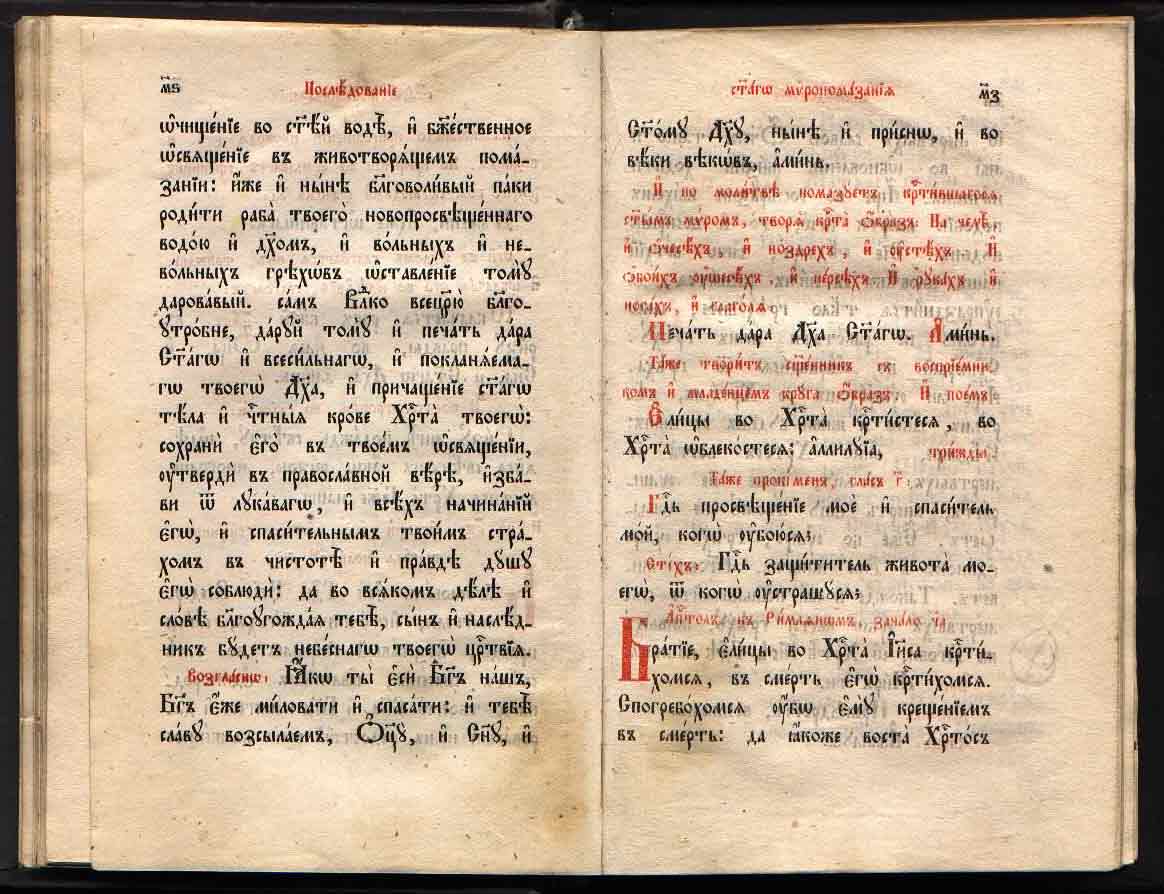 м҃ѕ
Послѣ́дованїе
ѡ҆чище́нїе во ст҃ѣ́й водѣ̀, и҆ бж҃е́ственное
ѡ҆свѧще́нїе въ животворѧ́щемъ пома́-
занїи: и҆́же и҆ ны́нѣ бл҃говоли́вый па́ки
роди́ти раба̀ твоего̀ новопросвѣще́ннаго
водо́ю и҆ дх҃омъ, и҆ во́льныхъ и҆ не-
во́льныхъ грѣхѡ́въ ѡ҆ставле́нїе томꙋ̀
дарова́вый. са́мъ Влⷣко всецр҃ю̀ бл҃го-
ꙋтро́бне, да́рꙋй томꙋ̀ и҆ печа́ть да́ра
Ст҃а́гѡ и҆ всеси́льнагѡ, и҆ покланѧ́ема-
гѡ твоегѡ̀ Дх҃а, и҆ причаще́нїе ст҃а́гѡ
тѣ́ла и҆ чⷭ҇тны́ѧ кро́ве Хрⷭ҇та̀ твоегѡ̀:
сохранѝ є҆го̀ въ твое́мъ ѡ҆свѧще́нїи,
ᲂу҆твердѝ въ правосла́вной вѣ́рѣ, и҆зба́-
ви ѿ лꙋка́вагѡ, и҆ всѣ́хъ начина́нїй
є҆гѡ̀, и҆ спаси́тельнымъ твои́мъ стра́-
хомъ въ чистотѣ̀ и҆ пра́вдѣ дꙋ́шꙋ
є҆гѡ̀ соблюдѝ: да во всѧ́комъ дѣ́лѣ и҆
сло́вѣ бл҃гоꙋгожда́ѧ тебѣ̀, сы́нъ и҆ наслѣ́д-
никъ бꙋ́детъ небе́снагѡ твоегѡ̀ црⷭ҇твїѧ.
Возгла́снѡ: Ꙗ҆́кѡ ты̀ є҆сѝ Бг҃ъ на́шъ,
Бг҃ъ є҆́же ми́ловати и҆ спаса́ти: и҆ тебѣ̀
сла́вꙋ возсыла́емъ, Ѻ҆ц҃ꙋ̀, и҆ Сн҃ꙋ, и҆
ст҃а́гѡ мѵропома́занїѧ
м҃з
Ст҃о́мꙋ Дх҃ꙋ, ны́нѣ и҆ при́снѡ, и҆ во
вѣ́ки вѣкѡ́въ, а҆ми́нь,
И҆ по моли́твѣ помазꙋетъ крⷭ҇ти́вшагосѧ
ст҃ы́мъ мѵ́ромъ, творѧ̀ крⷭ҇та̀ ѻ҆́бразъ. На челѣ̀,
и҆ ѻ҆чесѣ́хъ, и҆ ноздрехъ, и҆ ᲂу҆стѣ́хъ и҆
ѻ҆бои́хъ ᲂу҆шесѣ́хъ, и҆ пе́рсѣхъ. И҆ рꙋка́хъ и҆
нога́хъ, и҆ глаго́лѧ.
Печа́ть да́ра Дх҃а Ст҃а́гѡ. А҆ми́нь.
Та́же твори́тъ сщ҃е́нникъ съ воспрїе́мни-
комъ и҆ младе́нцемъ крꙋга ѻ҆́бразъ. И҆ пое́мъ
Є҆ли́цы во Хрⷭ҇та̀ крⷭ҇ти́стесѧ, во
Хрⷭ҇та̀ ѡ҆блеко́стесѧ: а҆ллилꙋ́їа, три́жды.
Та́же проки́менѧ, гла́съ г҃:
Гдⷭ҇ь просвѣще́нїе моѐ и҆ спаси́тель
мо́й, когѡ̀ ᲂу҆бою́сѧ;
Сті́хъ: Гдⷭ҇ь защи́титель живота̀ мо-
егѡ̀, ѿ когѡ̀ ᲂу҆страшꙋ́сѧ;
А҆пⷭ҇толъ къ Ри́млѧнѡмъ, зача́ло ч҃а
Бра́тїе, є҆ли́цы во Хрⷭ҇та̀ І҆и҃са крⷭ҇ти́-
хомсѧ, въ сме́рть є҆гѡ̀ крⷭ҇ти́хомсѧ.
Спогребо́хомсѧ ᲂу҆́бѡ є҆мꙋ̀ креще́нїемъ
въ сме́рть: да ꙗ҆́коже воста̀ Хрⷭ҇то́съ